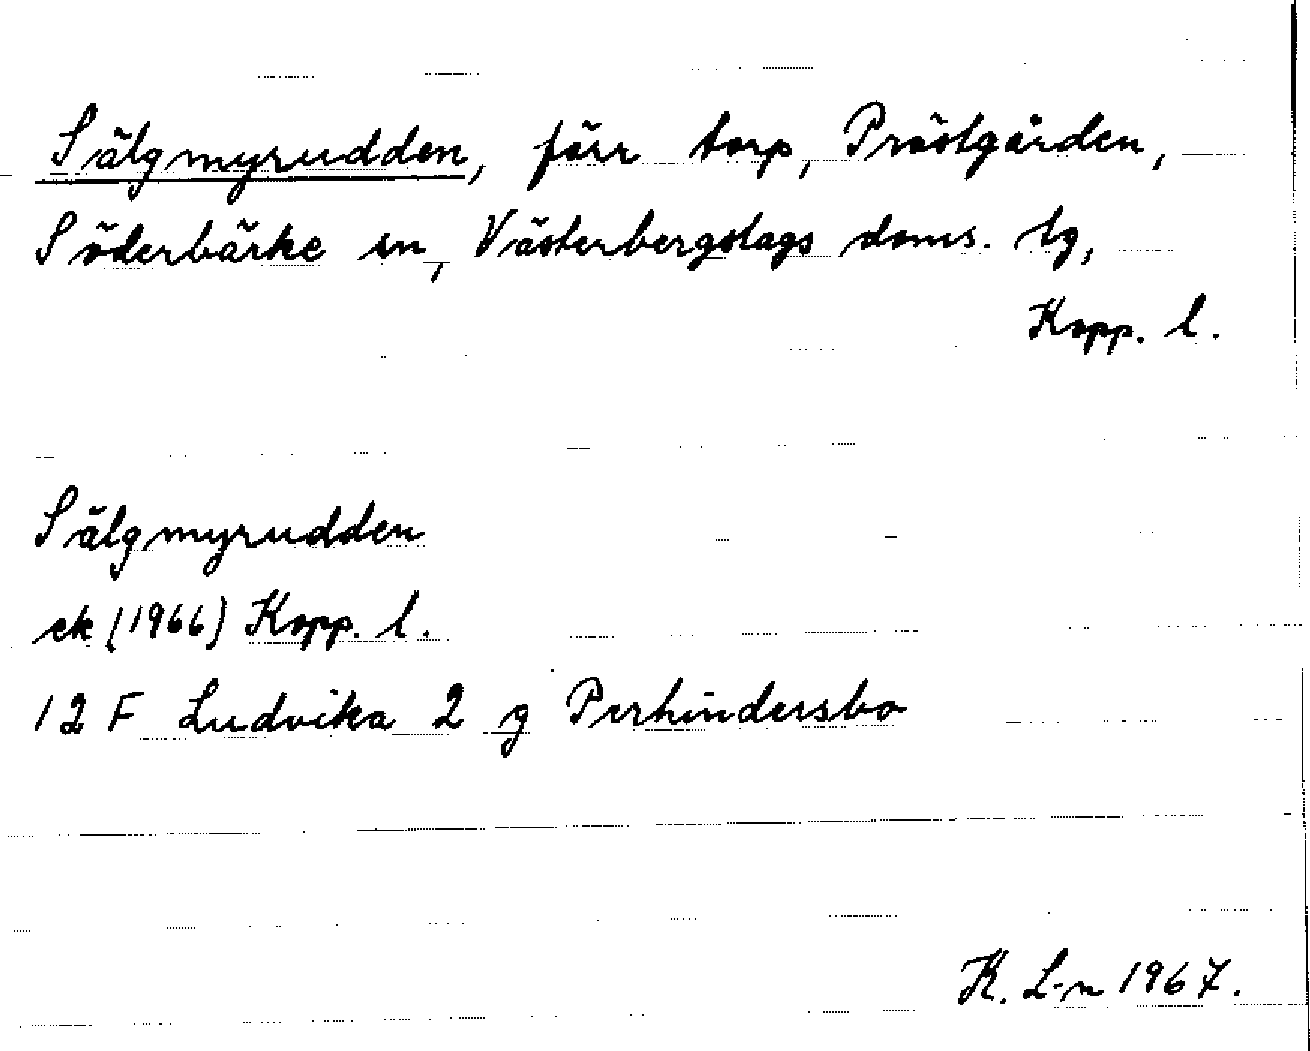 Sälgmyrudden, förr torp, Prästgården,
Söderbärke sn, Västerbergslags doms. tg,
Kopp. l.
Sälgmyrudden
ek (1966) Kopp. l.
12 F Ludvika 2 g Perhindersbo
K. L-n 1967.